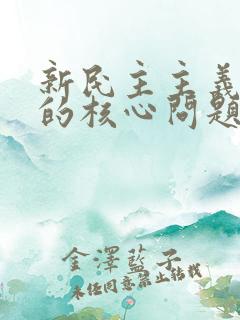 新民主主義
的核心問題
金澤藍子
未經同意禁止轉載